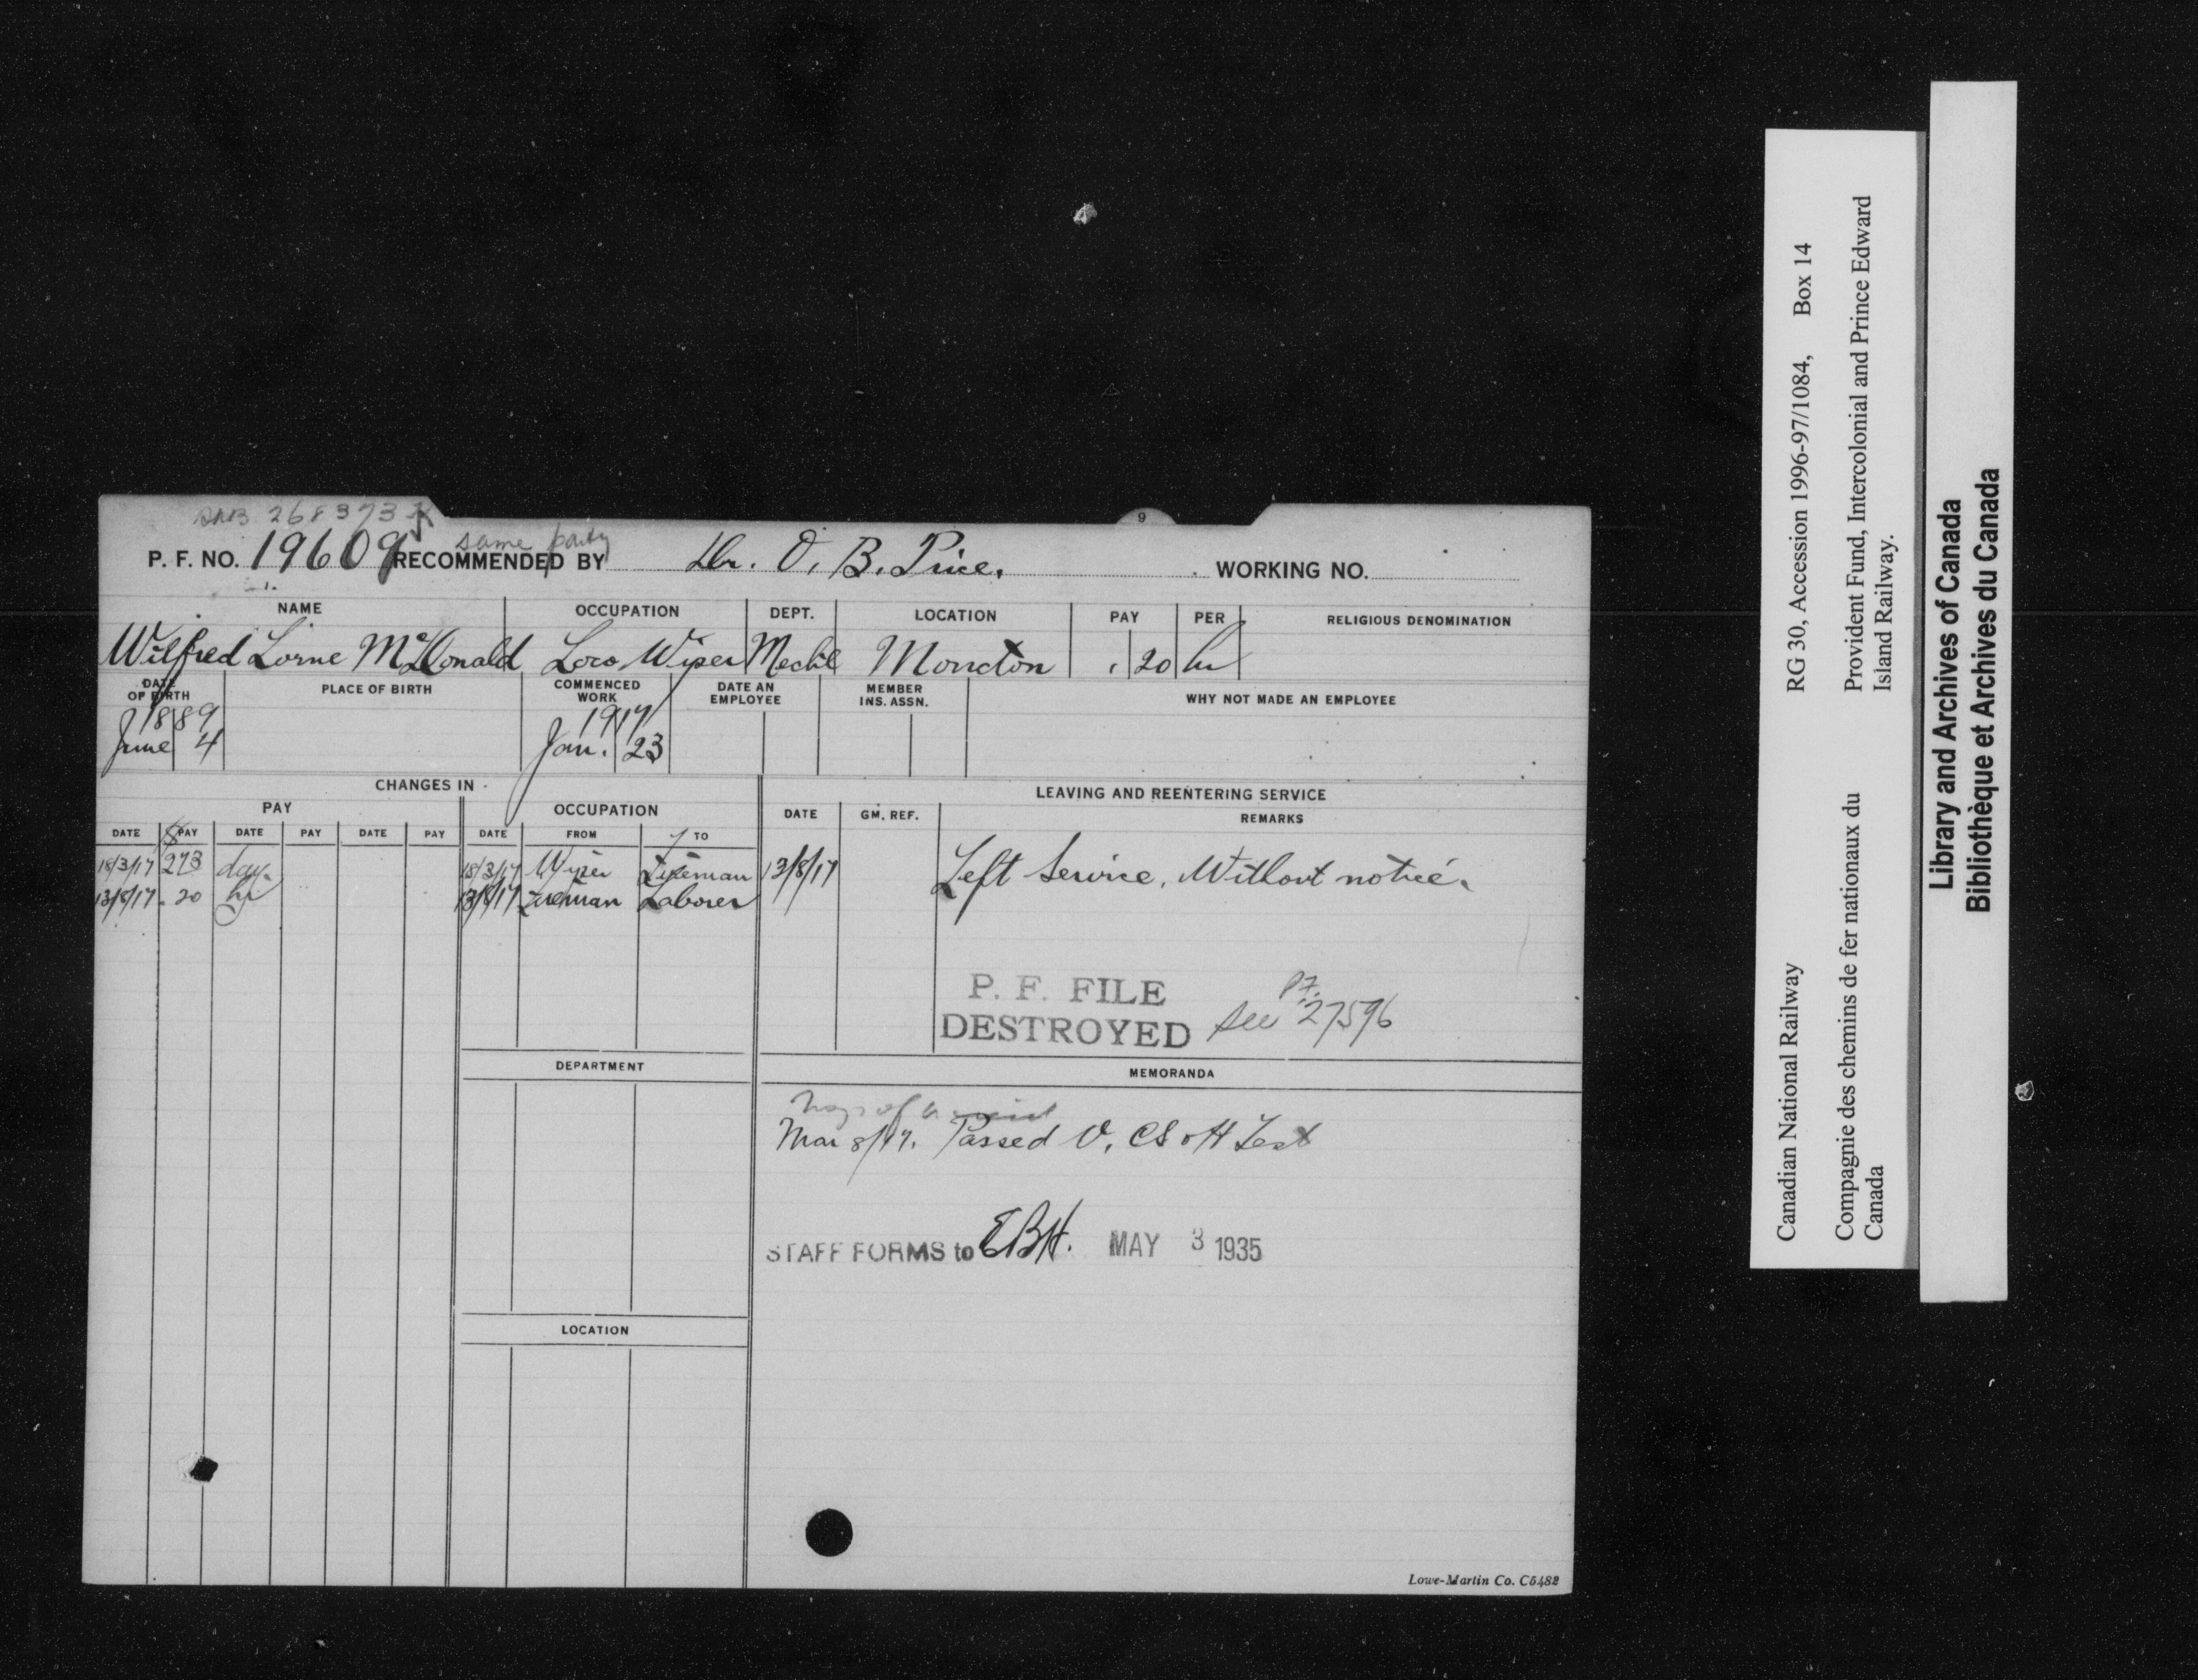 268373
same party
9
P. F. NO. 19609 RECOMMENDED BY Dr. O. B. Price. WORKING NO.
NAME OCCUPATION DEPT. LOCATION PAY PER RELIGIOUS DENOMINATION
Wilfred Lorne McDonald Loco Wiper Mechl Moncton .20 hr
DATE OF BIRTH PLACE OF BIRTH COMMENCED WORK DATE AN EMPLOYEE MEMBER INS. ASSN. WHY NOT MADE AN EMPLOYEE
1889 1917
June 4 Jan. 23
CHANGES IN LEAVING AND REENTERING SERVICE
PAY OCCUPATION DATE GM. REF. REMARKS
DATE PAY DATE PAY DATE PAY DATE FROM TO
18/3/17 273 day 18/3/17 Wiper Fireman 13/8/17 Left Service. Without notice.
13/8/17 .20 hr 13/8/17 Fireman Laborer
P. F. FILE
DESTROYED see P.F. 27596
DEPARTMENT MEMORANDA
Mar 8/17. Passed V, CS & H Test
STAFF FORMS to EBH. MAY 3 1935
LOCATION
Lowe-Martin Co. C5482
Canadian National Railway RG 30, Accession 1996-97/1084, Box 14
Compagnie des chemins de fer nationaux du Canada Provident Fund, Intercolonial and Prince Edward Island Railway.
Library and Archives of Canada
Bibliothèque et Archives du Canada